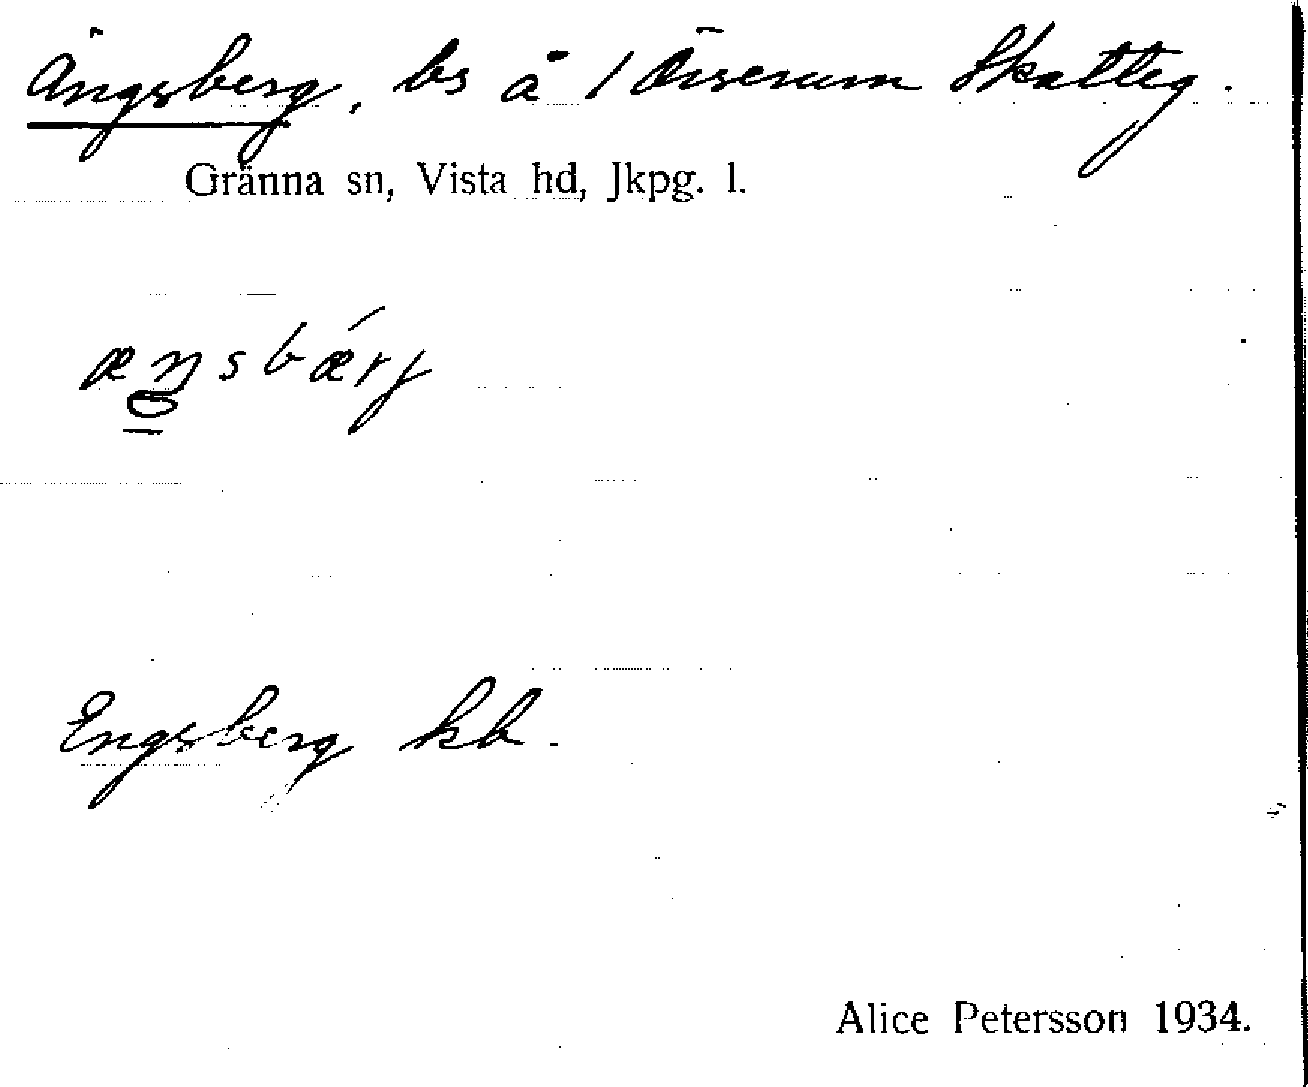 Ängsberg, bs å / Örserum Skatteg.
Gränna sn, Vista hd, Jkpg. l.
æŋsbǽrj
Engsberg kb.
Alice Petersson 1934.